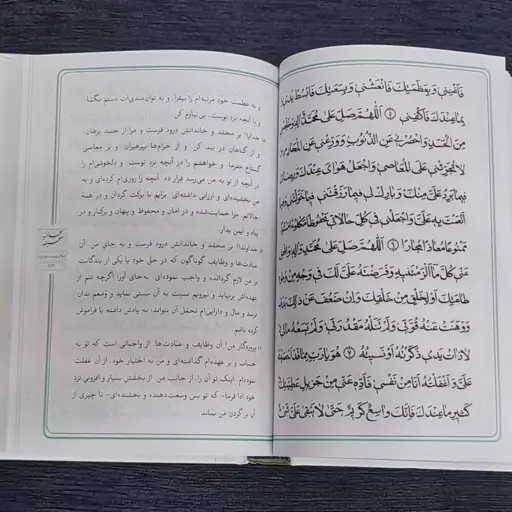 فَأَغْنِنِي وَبِعَظَمَتِكَ فَانْعَشْنِي وَبِسَعَتِكَ فَابْسُطْ يَدِي وَ
بِمَا عِنْدَكَ فَاكْفِنِي اللَّهُمَّ صَلِّ عَلَى مُحَمَّدٍ وَآلِهِ وَخَلِّصْنِي
مِنَ الْحَسَدِ وَاحْصُرْنِي عَنِ الذُّنُوبِ وَوَرِّعْنِي عَنِ الْمَحَارِمِ وَ
لَا تُجَرِّئْنِي عَلَى الْمَعَاصِي وَاجْعَلْ هَوَايَ عِنْدَكَ وَرِضَايَ
فِيمَا يَرِدُ عَلَيَّ مِنْكَ وَبَارِكْ لِي فِيمَا رَزَقْتَنِي وَفِيمَا خَوَّلْتَنِي وَفِيمَا
أَنْعَمْتَ بِهِ عَلَيَّ وَاجْعَلْنِي فِي كُلِّ حَالَاتِي مَحْفُوظًا مَكْلُوءًا مَسْتُورًا
مَمْنُوعًا مُعَاذًا مُجَارًا اللَّهُمَّ صَلِّ عَلَى مُحَمَّدٍ وَآلِهِ وَاقْضِ
عَنِّي كُلَّ مَا أَلْزَمْتَنِيهِ وَفَرَضْتَهُ عَلَيَّ لَكَ فِي وَجْهٍ مِنْ وُجُوهِ
طَاعَتِكَ أَوْ لِخَلْقٍ مِنْ خَلْقِكَ وَإِنْ ضَعُفَ عَنْ ذَلِكَ بَدَنِي
وَوَهَنَتْ عَنْهُ قُوَّتِي وَلَمْ تَنَلْهُ مَقْدُرَتِي وَلَمْ يَسَعْهُ مَالِي وَ
لَا ذَاتُ يَدِي ذَكَرْتُهُ أَوْ نَسِيتُهُ هُوَ يَا رَبِّ مِمَّا قَدْ أَحْصَيْتَهُ
عَلَيَّ وَأَغْفَلْتُهُ أَنَا مِنْ نَفْسِي فَأَدِّهِ عَنِّي مِنْ جَزِيلِ عَطِيَّتِكَ وَ
كَثِيرِ مَا عِنْدَكَ فَإِنَّكَ وَاسِعٌ كَرِيمٌ حَتَّى لَا يَبْقَى عَلَيَّ شَيْءٌ
و به عظمت خود مرتبه‌ام را بیفزا، و به توان‌مندی‌ات دستم بگشا
و با آنچه نزد توست، بی‌نیازم کن
خدایا! بر محمّد و خاندانش درود فرست و مرا از حسد برهان
و از گناهان در بند کن و از حرام‌ها بپرهیزان و بر معاصی
گستاخ مفرما و خواهشم را در آنچه نزد توست و دلخوشی‌ام را
در آنچه از تو به من می‌رسد قرار ده. آنچه را روزی‌ام کرده‌ای و به
من بخشیده‌ای و ارزانی داشته‌ای برایم با برکت گردان و در همهٔ
حالاتم، مرا حمایت‌شده و در امان و محفوظ و پنهان و برکنار و در
پناه و ایمن بدار
خداوندا! بر محمّد و خاندانش درود فرست و به جای من، آن
عبادت‌ها و وظایف گوناگون که در حق خود یا یکی از بندگانت
بر من لازم گردانده و واجب نموده‌ای، به‌جای آور؛ اگرچه تنم از
عهده‌اش برنیاید و نیرویم نسبت به آن سستی نماید و وُسعم بدان
نرسد و مال و دارایی‌ام تحمّل آن نتواند، به یادش داشته یا فراموش
کرده باشم.
پروردگار من! آن وظایف و عبادت‌ها، از واجباتی است که تو به
حساب و بر عهده‌ام گذاشته‌ای و من به اختیار خود، از آن غفلت
نموده‌ام. اینک تو آن را، از جانب من، از بخشش بسیار و افزونی نزد
خود ادا فرما- که تو بس وسعت‌دهنده و بخشنده‌ای- تا چیزی از
آن بر گردن من نماند